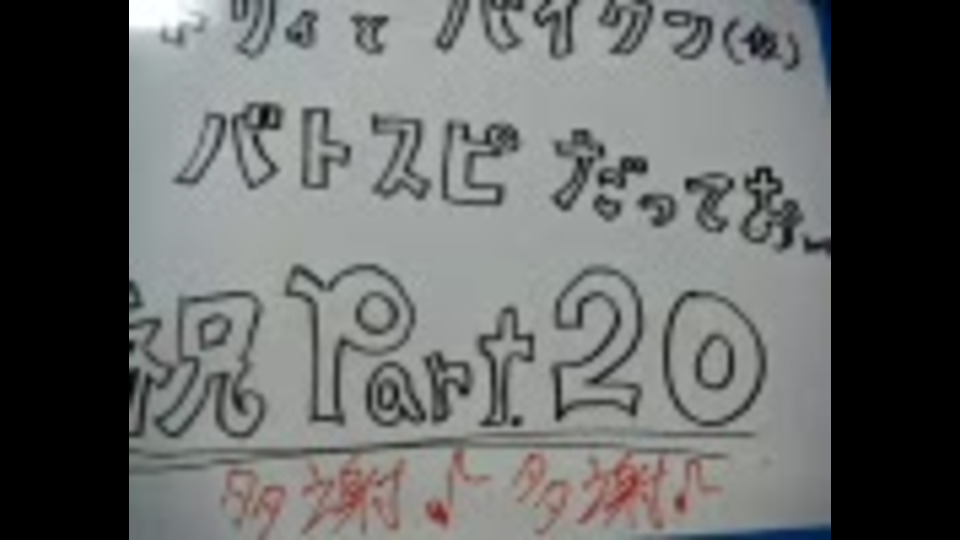 リィと バイクン(仮)
バトスピ だってお〜
祝 Part.20
多謝♪ 多謝♪